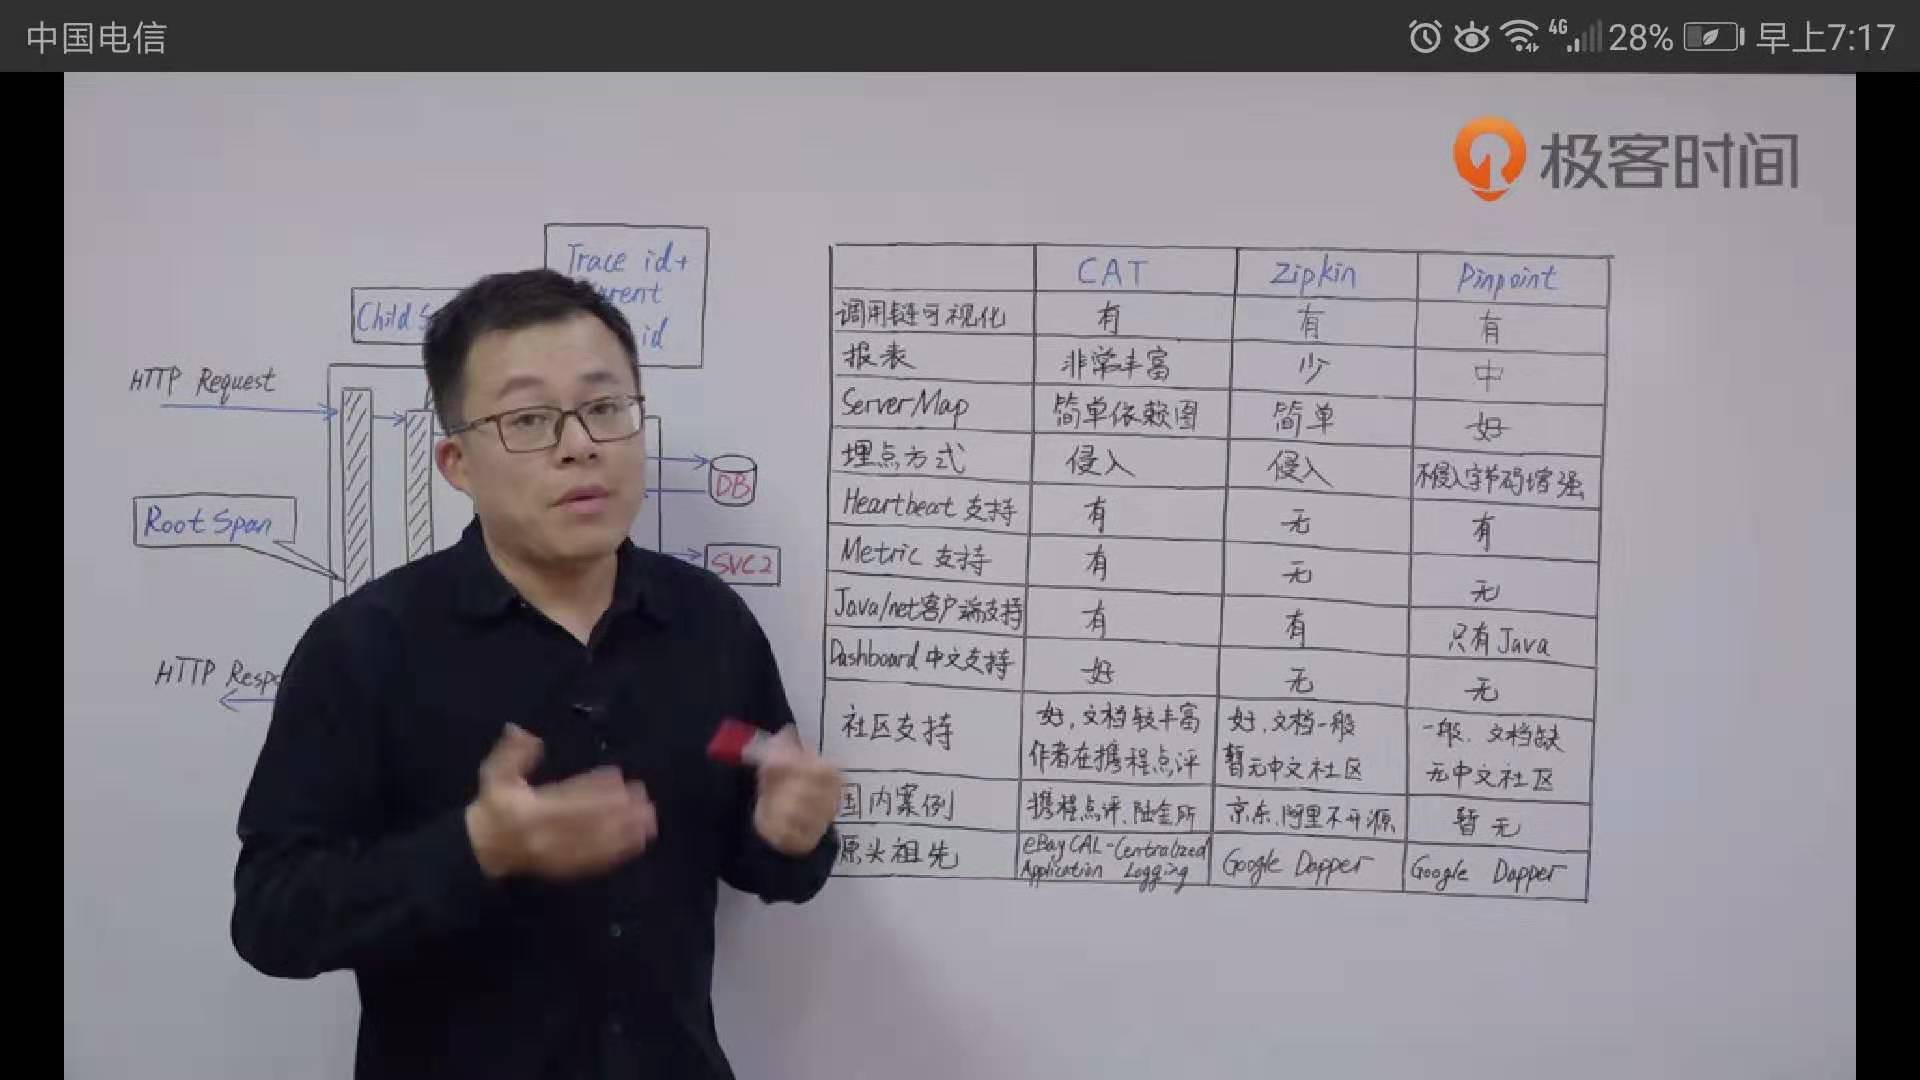 中国电信
4G 28% 早上7:17
极客时间
Trace id+
id
Child
HTTP Request
Root Span
DB
SVC2
HTTP Resp
CAT Zipkin Pinpoint
调用链可视化 有 有 有
报表 非常丰富 少 中
ServerMap 简单依赖图 简单 好
埋点方式 侵入 侵入 不侵入字节码增强
Heartbeat 支持 有 无 有
Metric 支持 有 无 无
Java/net客户端支持 有 有 只有Java
Dashboard 中文支持 好 无 无
社区支持 好,文档较丰富 好,文档一般 一般、文档缺
作者在携程点评 暂无中文社区 无中文社区
国内案例 携程点评、陆金所 京东、阿里不开源 暂无
源头祖先 eBay CAL-Centralized Google Dapper Google Dapper
Application Logging